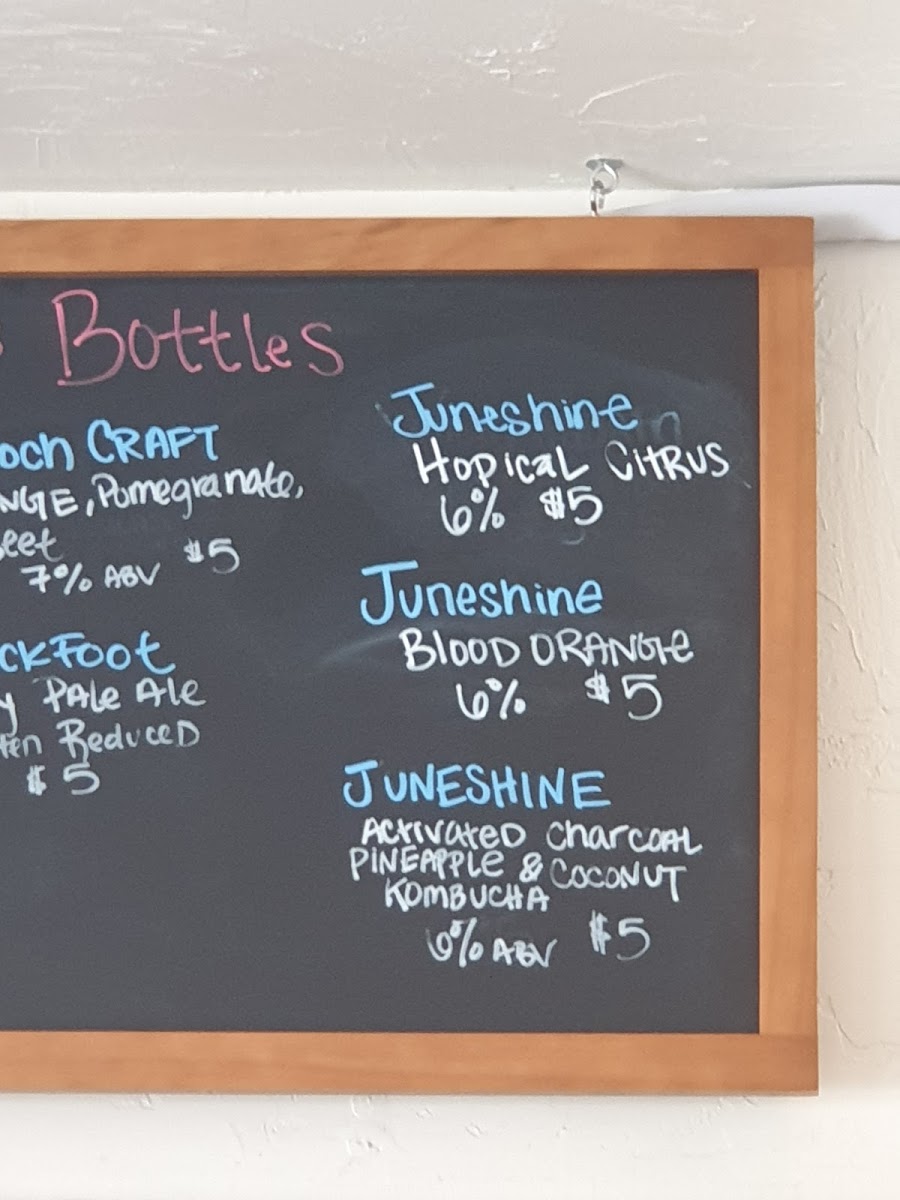 Bottles
och CRAFT
NGE, Pomegranate,
eet
7% ABV $5
ckFoot
y PALE ALE
ten REDUCED
$5
Juneshine
HOPICAL CITRUS
6% $5
Juneshine
BLOOD ORANGE
6% $5
JUNESHINE
ACTIVATED CHARCOAL
PINEAPPLE & COCONUT
KOMBUCHA
6% ABV $5